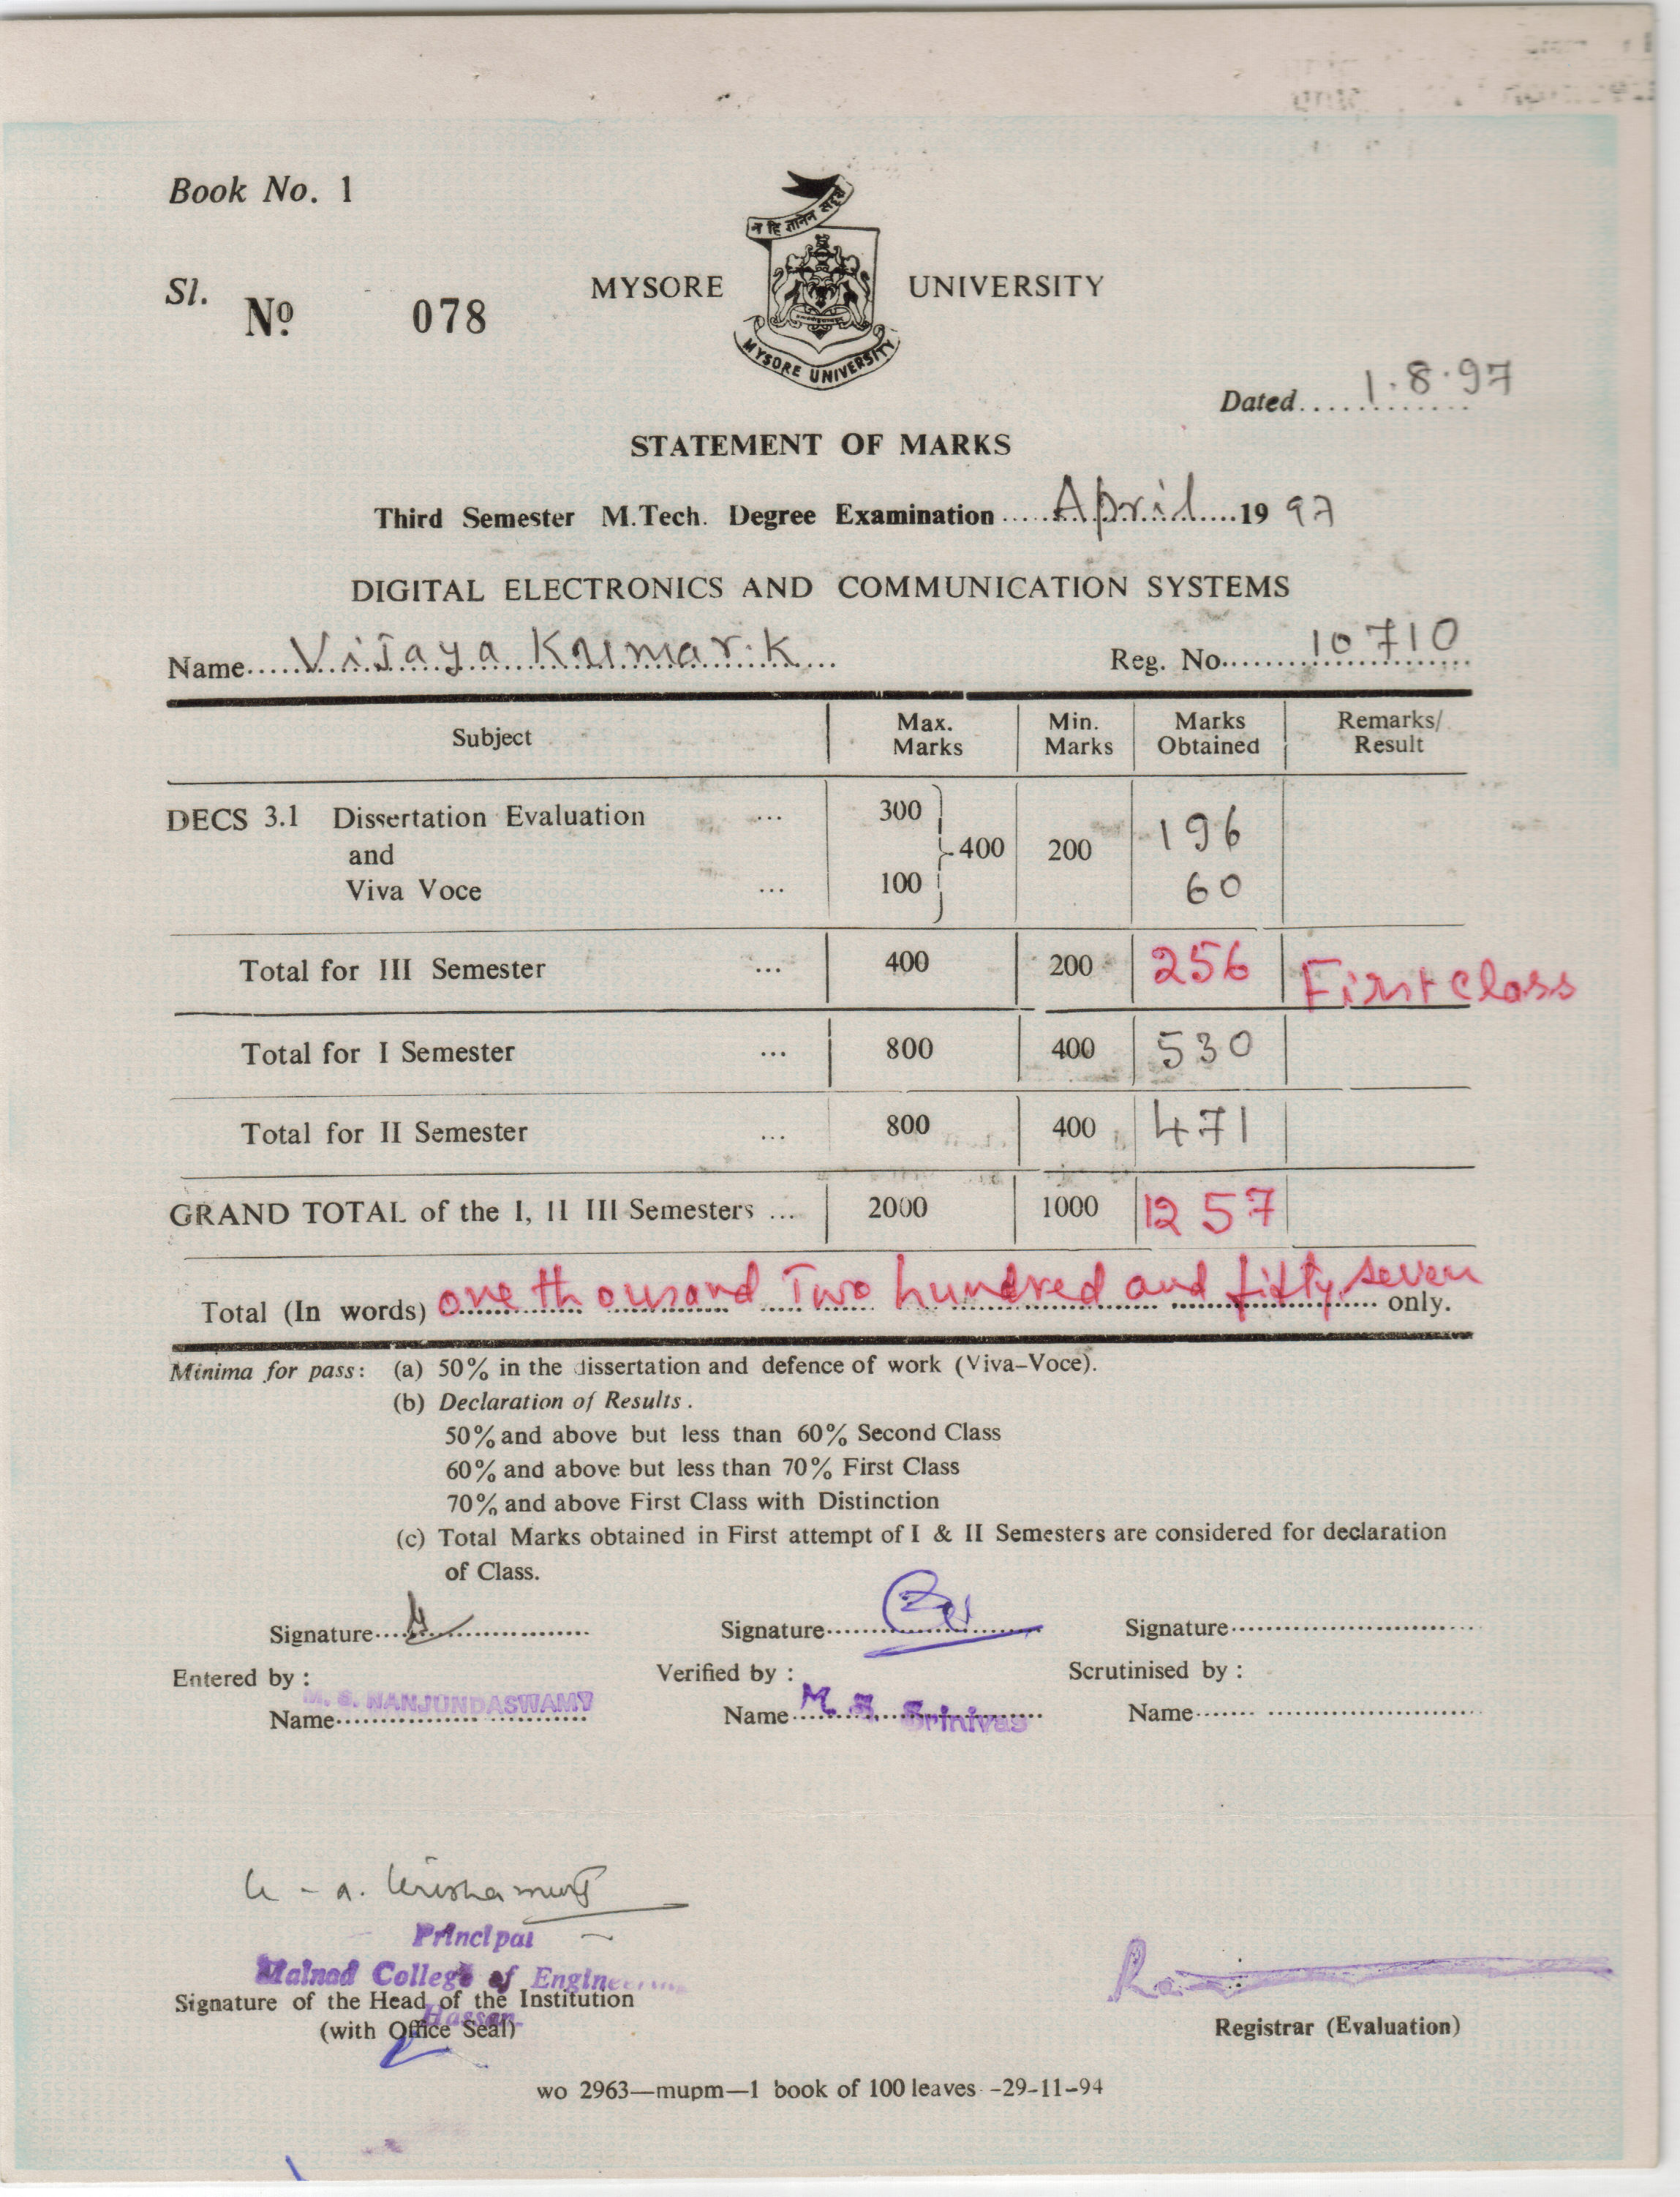 Book No. 1
न हि ज्ञानेन सदृशं
Sl. No 078
MYSORE UNIVERSITY
MYSORE UNIVERSITY
Dated 1.8.97
STATEMENT OF MARKS
Third Semester M.Tech. Degree Examination April 1997
DIGITAL ELECTRONICS AND COMMUNICATION SYSTEMS
Name Vijaya Kumar.K Reg. No. 10710
Subject Max. Marks Min. Marks Marks Obtained Remarks/ Result
DECS 3.1 Dissertation Evaluation ... 300 196
and 400 200
Viva Voce ... 100 60
Total for III Semester ... 400 200 256 First Class
Total for I Semester ... 800 400 530
Total for II Semester ... 800 400 471
GRAND TOTAL of the I, II III Semesters ... 2000 1000 1257
Total (In words) one thousand Two hundred and fifty seven only.
Minima for pass: (a) 50% in the dissertation and defence of work (Viva-Voce).
(b) Declaration of Results.
50% and above but less than 60% Second Class
60% and above but less than 70% First Class
70% and above First Class with Distinction
(c) Total Marks obtained in First attempt of I & II Semesters are considered for declaration
of Class.
Signature Signature Signature
Entered by : Verified by : Scrutinised by :
Name M. S. NANJUNDASWAMY Name M. S. Srinivas Name
Principal
Malnad College of Engineering
Hassan
Signature of the Head of the Institution
(with Office Seal)
Registrar (Evaluation)
wo 2963—mupm—1 book of 100 leaves -29-11-94